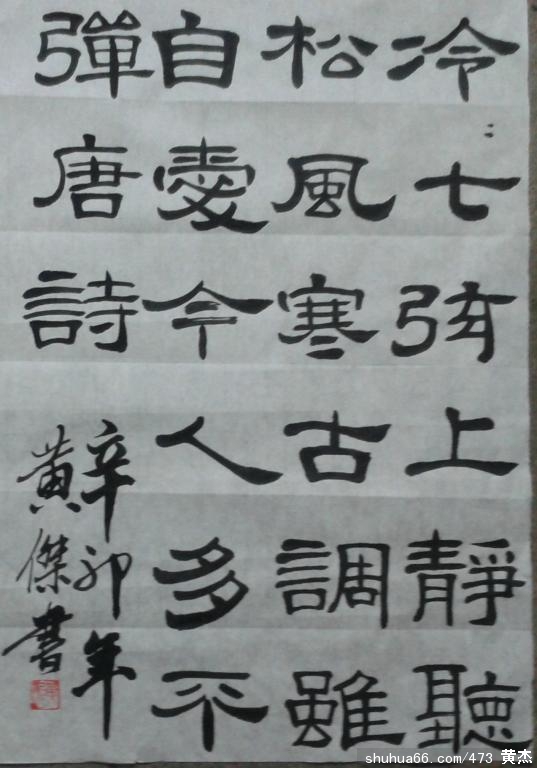 冷〻七弦上靜聽
松風寒古調雖
自愛今人多不
彈唐詩
辛卯年
黃傑書
shuhua66.com/473 黄杰